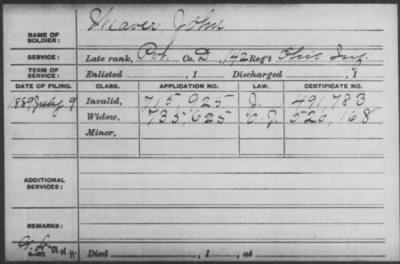 Weaver John
NAME OF SOLDIER:
SERVICE: Late rank, Pvt. Co. D, 142 Reg't Ohio Inf.
TERM OF SERVICE: Enlisted , 1 Discharged , 1
DATE OF FILING. CLASS. APPLICATION NO. LAW. CERTIFICATE NO.
1889 July 9 Invalid, 715,925 J. 491,783
Widow, 735,625 526,168
Minor,
ADDITIONAL SERVICES:
REMARKS:
Died , 1 , at